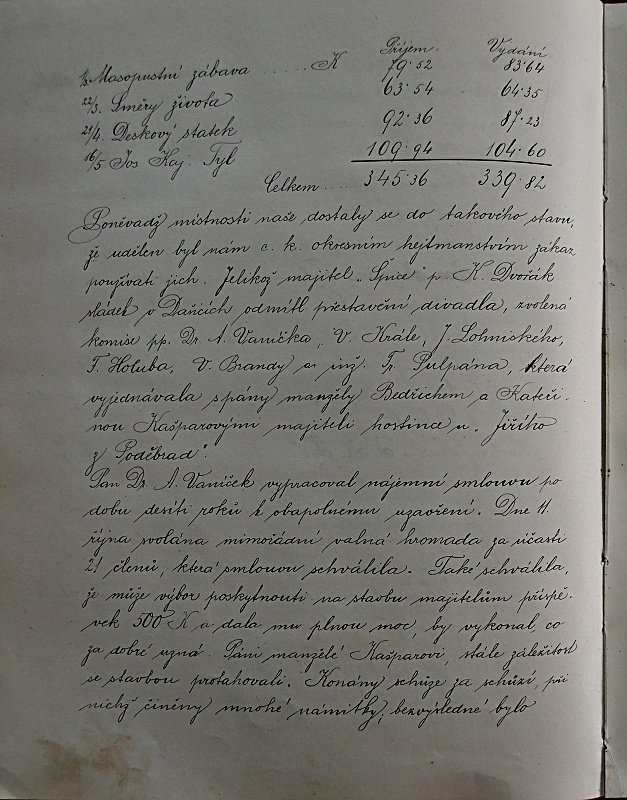 Příjem. Vydání
1/3. Masopustní zábava ........ K 79·52 83·64
22/3. Směry života 63·54 64·35
23/4. Deskový statek 92·36 87·23
16/5 Jos Kaj. Tyl 109·94 104·60
Celkem .... 345·36 339·82
Poněvadž místnosti naše dostaly se do takového stavu,
že udělen byl nám c. k. okresním hejtmanstvím zákaz
používati jich. Jelikož majitel „Špice" p. K. Dvořák
sládek v Dašicích odmítl přestavění divadla, zvolena
komise pp. Dr. A. Vanička, V. Krále, J. Lohniského,
F. Holuba, V. Brandy a inž. Fr. Pulpána, která
vyjednávala s pány manžely Bedřichem a Kateři-
nou Kašparovými majiteli hostince u. Jiřího
z Poděbrad".
Pan Dr. A. Vaníček vypracoval nájemní smlouvu po
dobu desíti roků k obapolnému uzavření. Dne 11.
října svolána mimořádní valná hromada za účasti
21 členů, která smlouvu schválila. Také schválila,
že může výbor poskytnouti na stavbu majitelům příspě-
vek 500 K a dala mu plnou moc, by vykonal co
za dobré uzná. Páni manželé Kašparovi, stále záležitost
se stavbou protahovali. Konány schůze za schůzí, při
nichž činěny mnohé námitky, bezvýsledné bylo